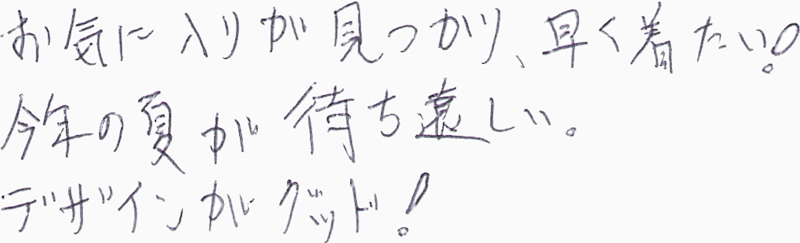 お気に入りが見つかり、早く着たい!
今年の夏が待ち遠しい。
デザインがグッド!